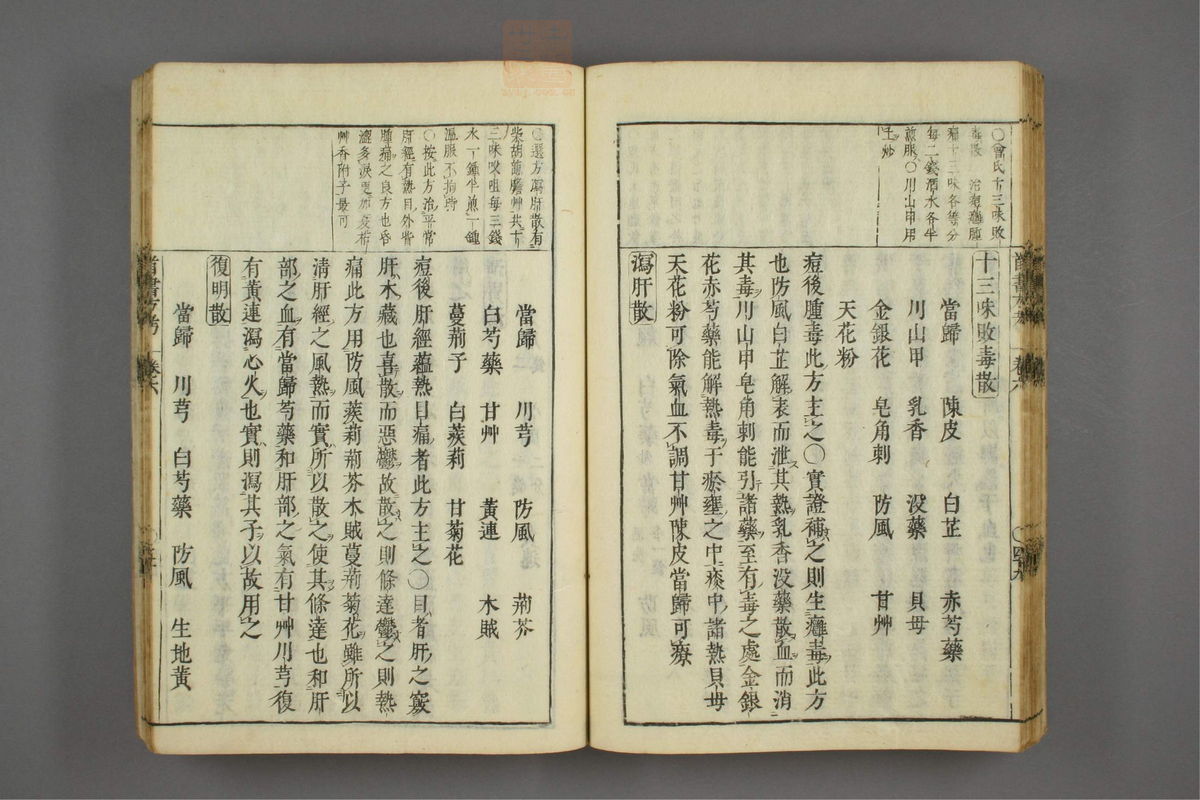 十三味敗毒散
當歸 陳皮 白芷 赤芍藥
川山甲 乳香 没藥 貝母
金銀花 皂角刺 防風 甘艸
天花粉
痘後腫毒此方主之〇實證補之則生癰毒此方
也防風白芷解表而泄其熱乳香没藥散血而消
其毒川山甲皂角刺能引諸藥至有毒之處金銀
花赤芍藥能解熱毒于瘀壅之中痰中諸熱貝母
天花粉可除氣血不調甘艸陳皮當歸可療
瀉肝散
〇曾氏十三味敗
毒散 治瘡癰腫
痛十三味各等分
每二錢酒水各半
煎服〇川山甲用
土炒
當歸 川芎 防風 荊芥
白芍藥 甘艸 黃連 木賊
蔓荊子 白蒺莉 甘菊花
痘後肝經蘊熱目痛者此方主之〇目者肝之竅
肝木藏也喜散而惡鬱故散之則條達鬱之則熱
痛此方用防風蒺莉荊芥木賊蔓荊菊花雖所以
清肝經之風熱而實所以散之使其條達也和肝
部之血有當歸芍藥和肝部之氣有甘艸川芎復
有黃連瀉心火也實則瀉其子以故用之
復明散
當歸 川芎 白芍藥 防風 生地黃
〇選方瀉肝散有
柴胡龍膽艸共十
三味㕮咀每三錢
水一鍾半煎一鍾
溫服不拘時
〇按此方治平常
肝經有熱目外眥
腫痛之良方也昏
澀多淚更加夏枯
艸香附子最可